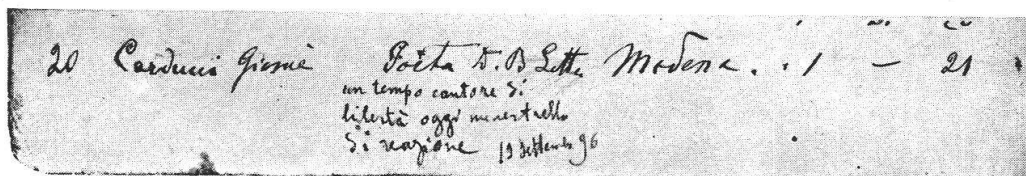 20 Carducci Giosuè Poeta D. B Lettre Modena . . 1 — 21
un tempo cantore di
libertà oggi menestrello
di reazione 19 Settembre 96